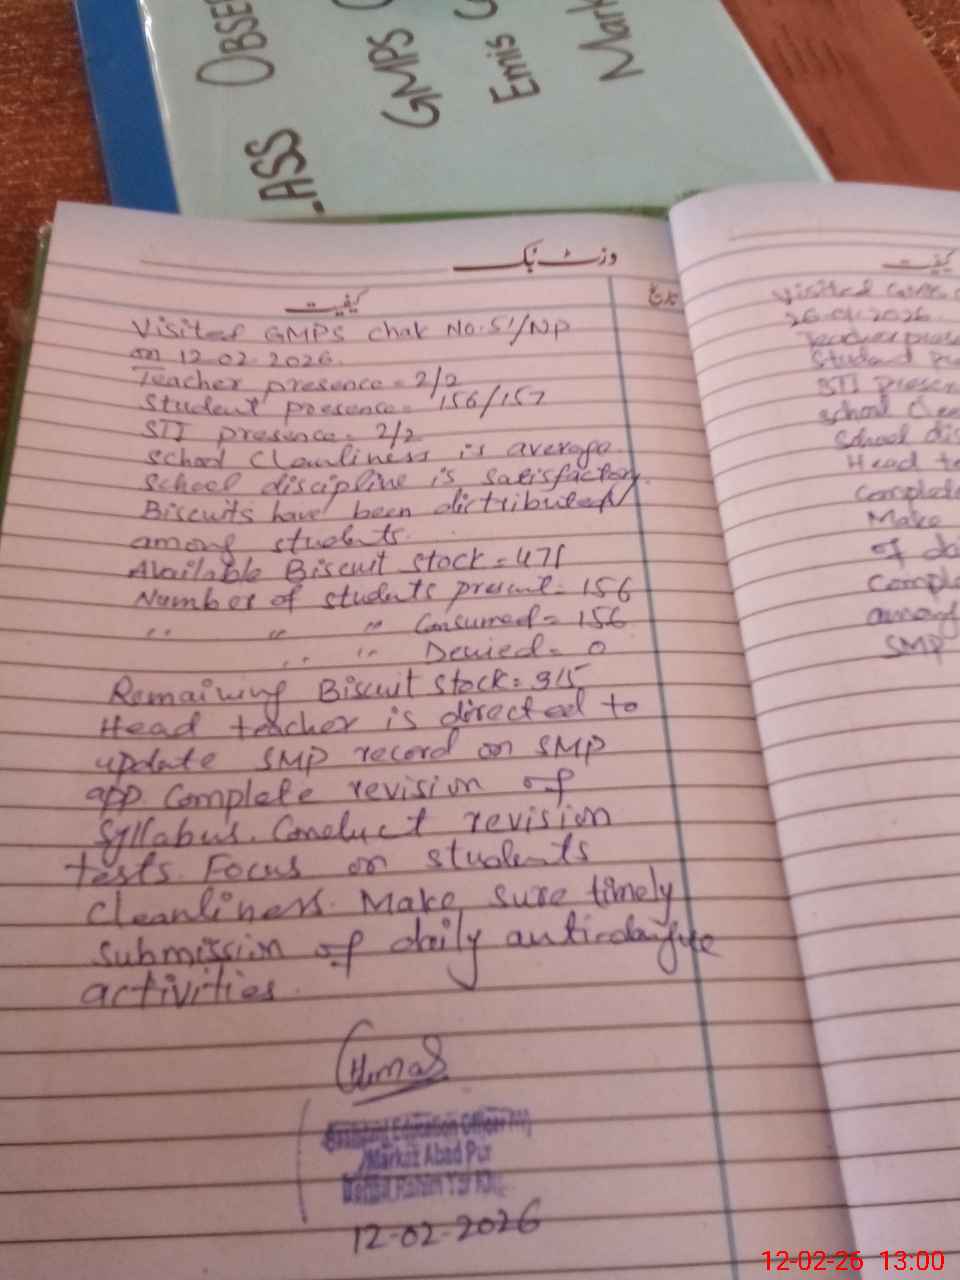 OBSE
GMPS
Emis
Mark
ASS
وزٹ بک
کیفیت
تاریخ
Visited GMPS Chak No. 51/NP
on 12.02.2026.
Teacher presence = 2/2
Student presence = 156/157
STI presence = 2/2
School Cleanliness is average.
School discipline is satisfactory.
Biscuits have been distributed
among students.
Available Biscuit Stock = 471
Number of students present = 156
" " " Consumed = 156
" " Denied = 0
Remaining Biscuit Stock = 315
Head teacher is directed to
update SMP record on SMP
app. Complete revision of
Syllabus. Conduct revision
tests. Focus on students
Cleanliness. Make sure timely
submission of daily anti-dengue
activities.
Education Officer
Markaz Abad Pur
Rahim Yar
12-02-2026
کیفیت
Visited GMPS
26.01.2026
Teacher prese
Student pr
STI presen
School Clea
School dis
Head te
Complete
Make
of da
Comple
among
SMP
12-02-26 13:00